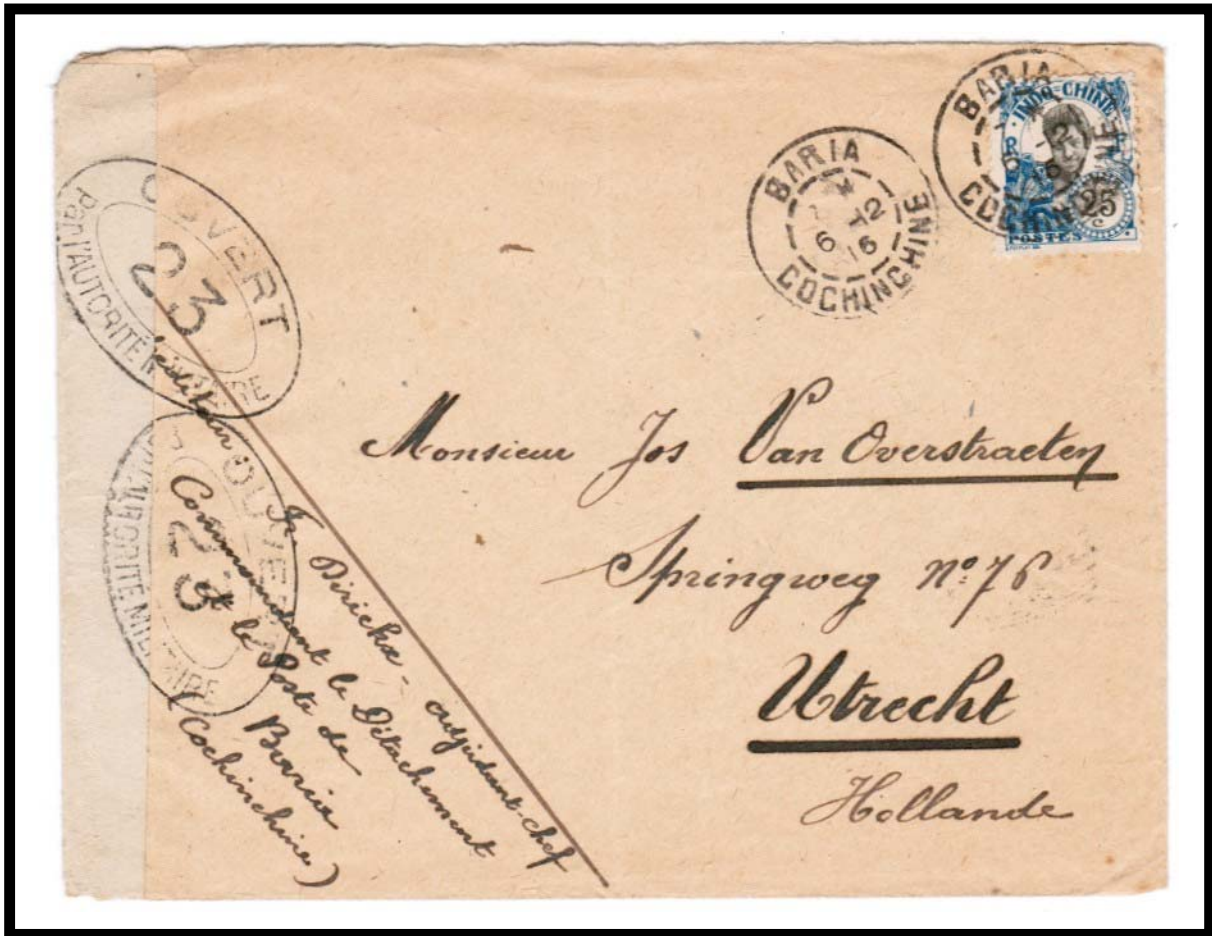 BARIA
6 -12
16
COCHINCHINE
BARIA
6 -12
16
COCHINCHINE
INDO-CHINE
R F
25
c
POSTES
OUVERT
23
Par l'AUTORITÉ MILITAIRE
OUVERT
23
Par l'AUTORITÉ MILITAIRE
Monsieur Jos Van Overstraeten
Springweg N° 76
Utrecht
Hollande
Fr Dirickx - adjudant-chef
Commandant le Détachement
et le Poste de
Baria
(Cochinchine)